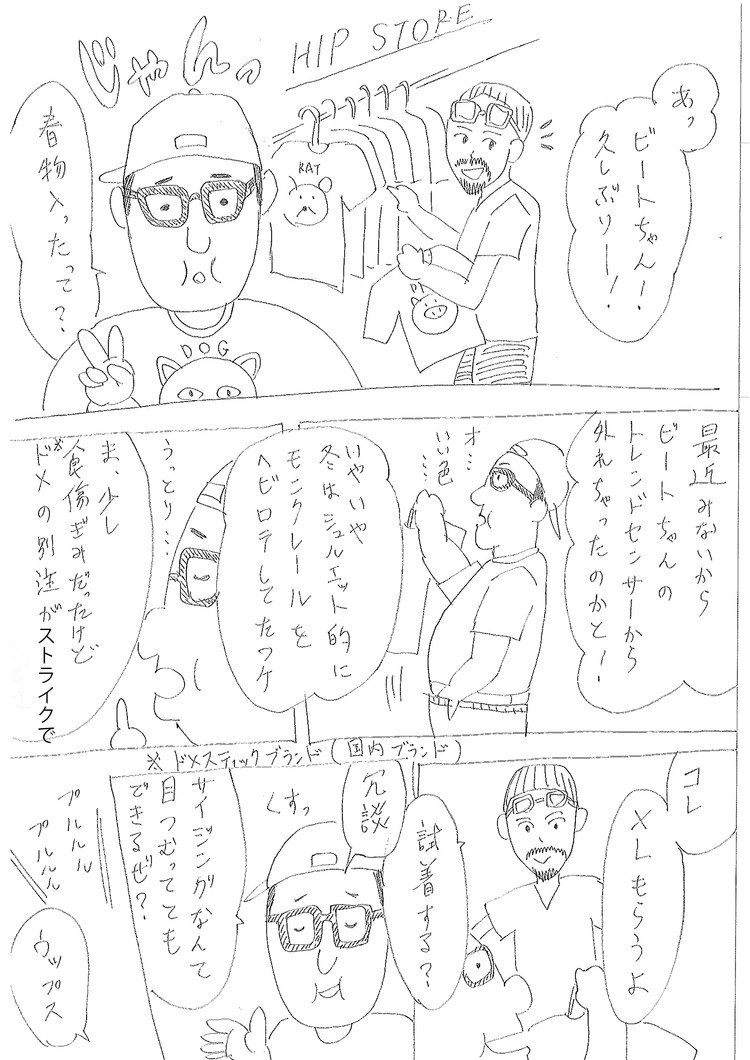 HIP STORE
あっ
ビートちゃん!
久しぶりー!
じゃんっ
RAT
DOG
春物入ったって?
最近みないから
ビートちゃんの
トレンドセンサーから
外れちゃったのかと!
オ…
いい色…
いやいや
冬はシルエット的に
モンクレールを
ヘビロテしてたワケ
うっとり…
ま、少し
食傷ぎみだったけど
ドメ※の別注がストライクで
※ドメスティックブランド(国内ブランド)
コレ
XLもらうよ
試着する?
冗談
くすっ
サイジングなんて
目つむってても
できるぜ?
プルルル
プルルル
ウップス